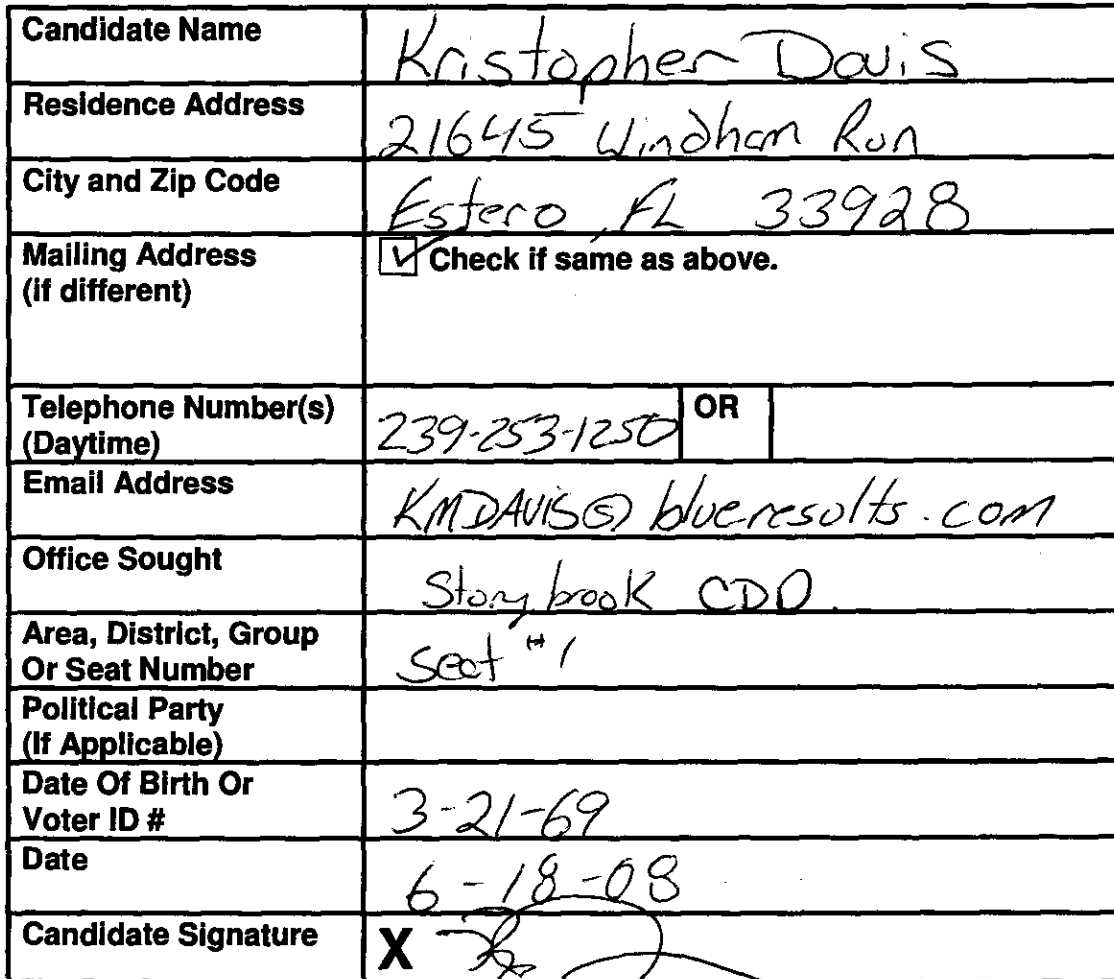 Candidate Name Kristopher Davis
Residence Address 21645 Windham Run
City and Zip Code Estero, FL 33928
Mailing Address ☑ Check if same as above.
(if different)
Telephone Number(s) 239-253-1250 OR
(Daytime)
Email Address KMDAVIS@blueresults.com
Office Sought Storybook CDD
Area, District, Group Seat #1
Or Seat Number
Political Party
(If Applicable)
Date Of Birth Or 3-21-69
Voter ID #
Date 6-18-08
Candidate Signature X